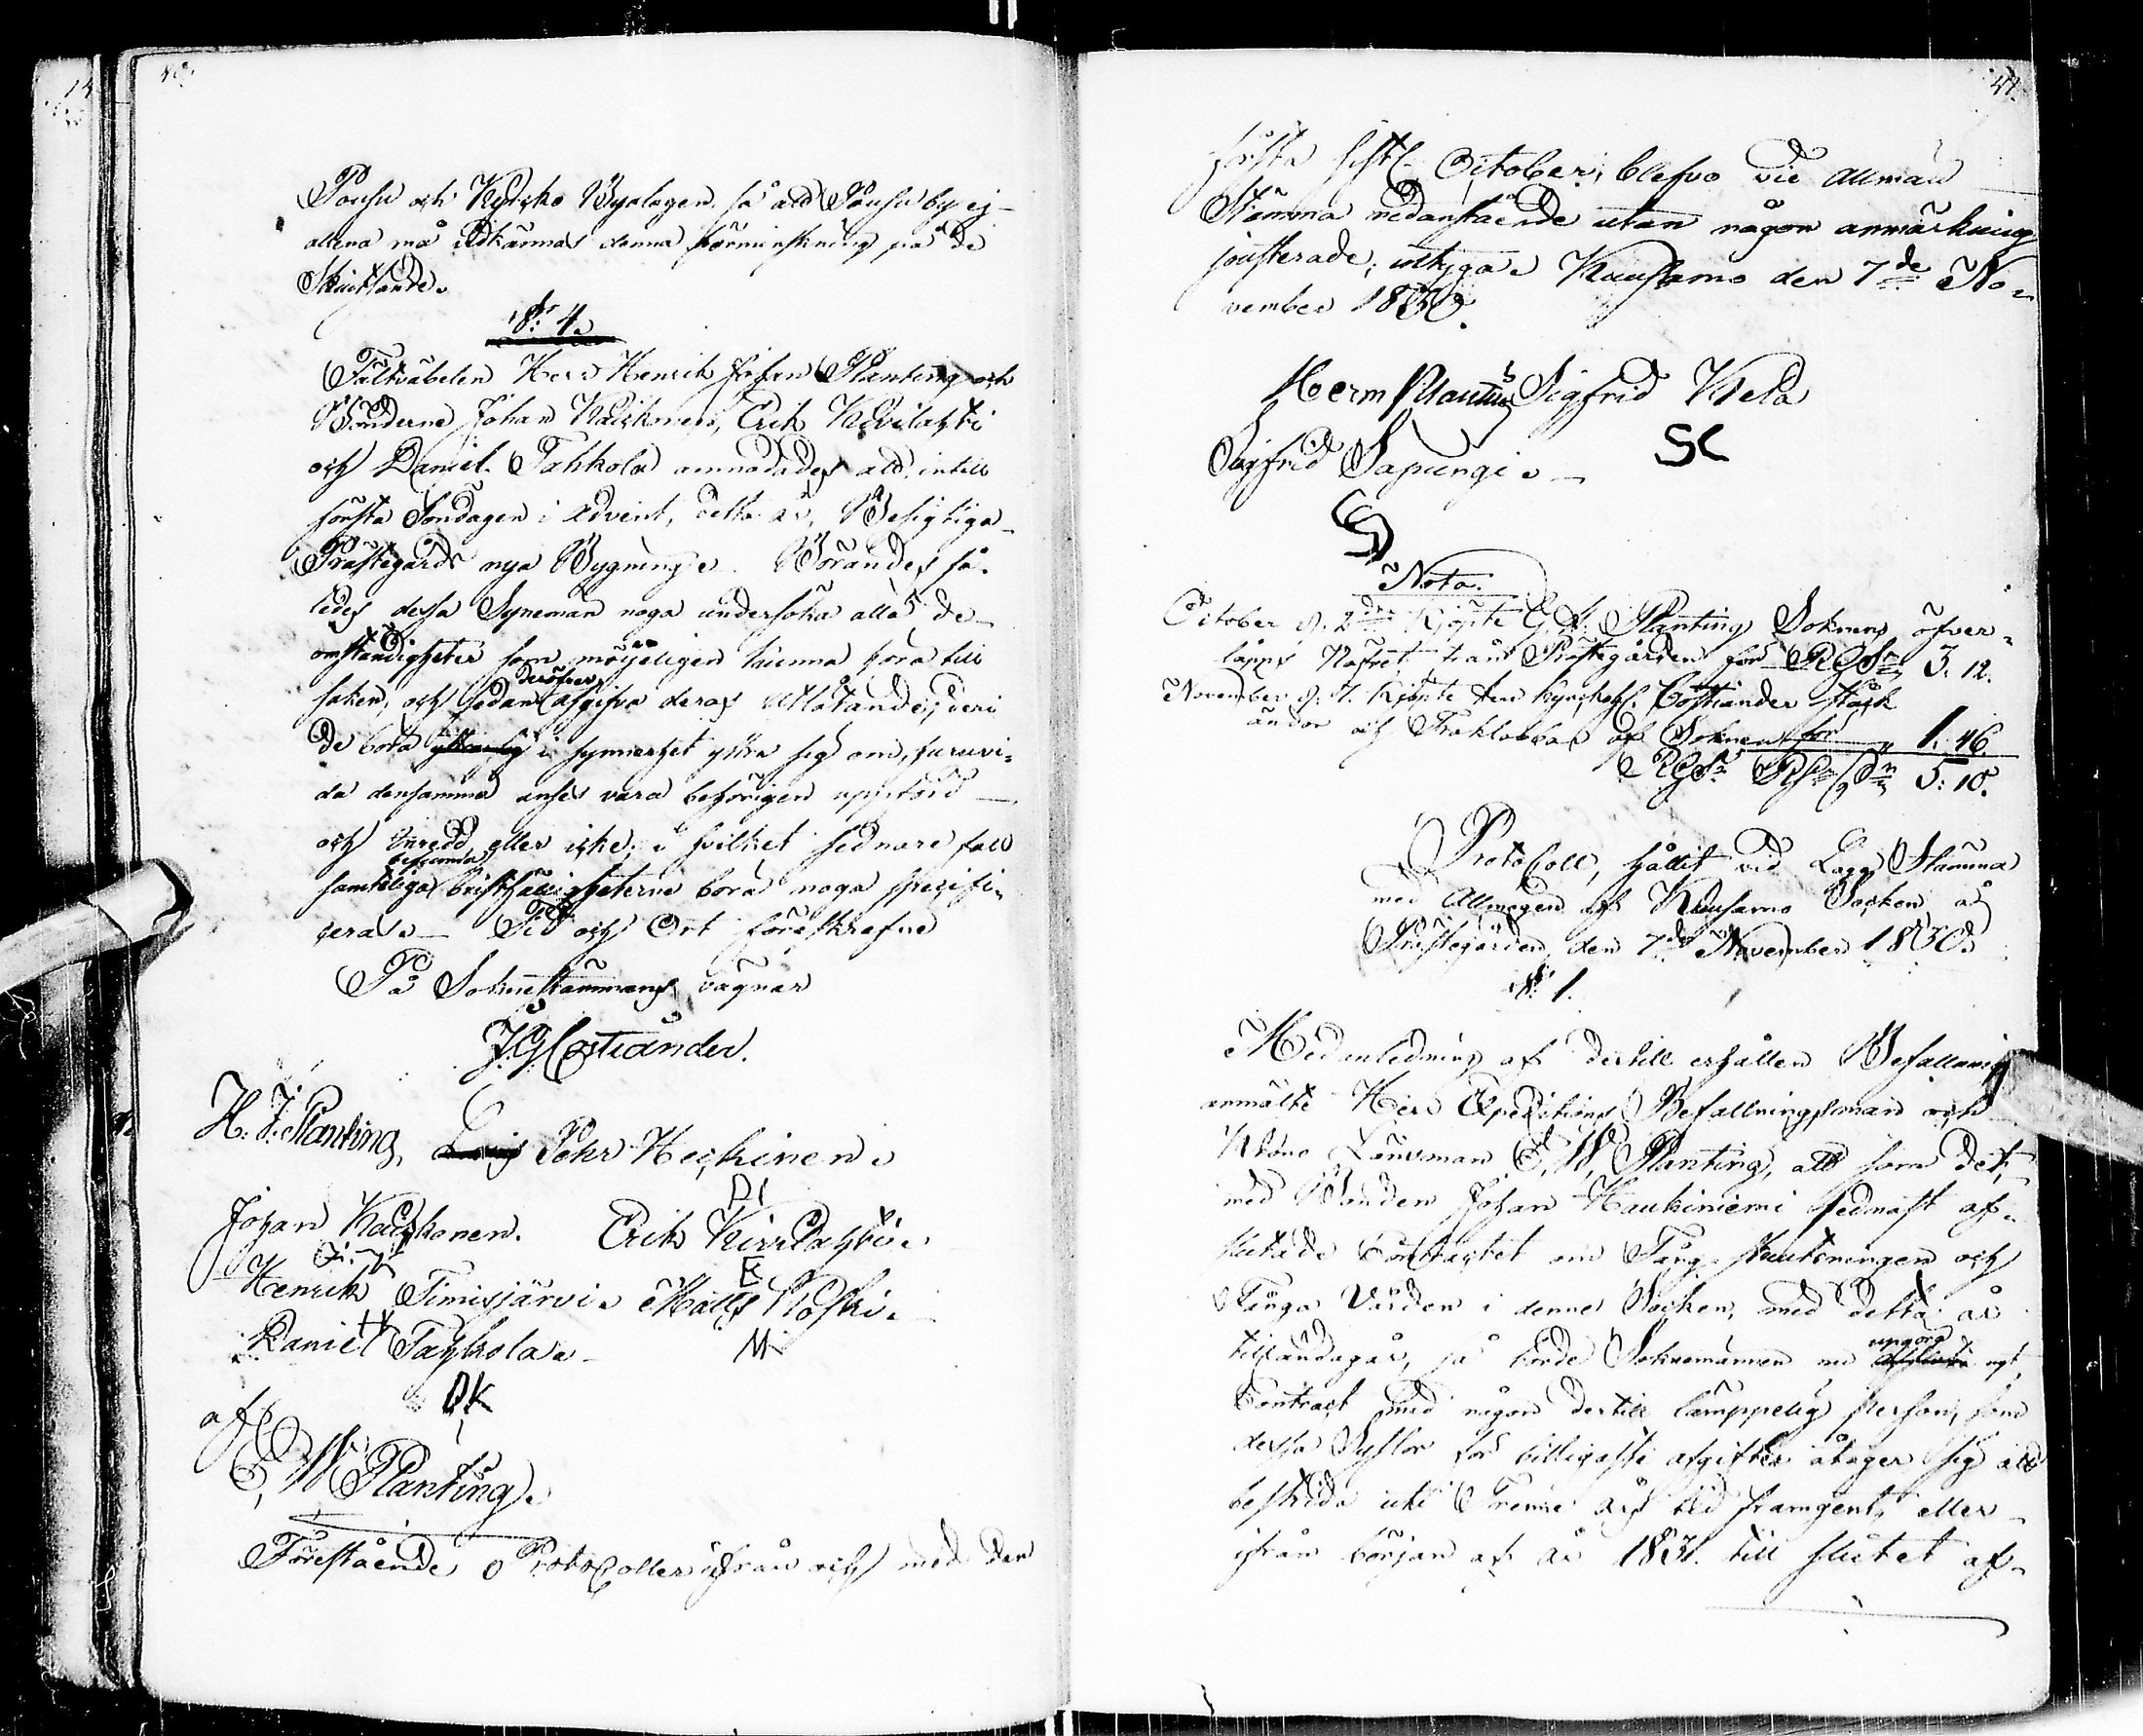 40.
Pousu och Kyrcko Byalagen, så att Pousu by ej
allena må vidkännas denna förminskning på de
Skuitsande.
§: 4.
Fältväbelen Herr Henrik Johan Planting och
Bönderne Johan Kaiskonen, Erik Kivilahti
och Daniel Tahkola anmodades att intill
första Söndagen i Advent, detta år, Besigtiga
Prästegårds nya Bygninge. Börandes så-
ledes dessa Synemän noga undersöka alla de
omständigheter som möjeligen kunna höra till
saken, och sedan deröfver afgifva deras Utlåtande; deri
de böra i synnerhet yttra sig om, huruvi-
da densamma anses vara behörigen uppförd
och inredd eller icke; i hvilket sednare fall
samteliga befundna bristfälligheterne böra noga specifi-
ceras. Tid och Ort föreskrefne
På Sokneståmmans vägnar
J. G. Costiander.
H. J. Planting. Pehr Heickinen.
Johan Kaiskonen. Erik Kivilahti.
Henrik Timisjärvi. Matts Koski.
Daniel Tahkola.
DK
af
E. W. Planting.
Förestående Protocoller ifrån och med den
41.
första sistl. October, blefvo vid Allmän
Stämma nedanstående utan någon anmärkning
justerade; intygar Kuusamo den 7de No-
vember 1830.
Herm Planting Sigfrid Kela
Sigfrid Sapungi.
Nota.
October d. 2dra Kjöpte G. H. Planting Soknens öfver-
lapps Näfret från Prästegården för RGSr 3. 12.
November d. 7. Kjöpte Herr Kyrckoh. Costiander Stock
ändor och Träklabbar af Soknen för " 1. 46.
RGSr 5: 10.
ProtoColl, hållit vid Laga Stämma
med Allmogen af Kuusamo Socken å
Prästegården den 7de November 1830.
§: 1.
Med anledning af dertill erhållen Befallning
anmälte Herr Expeditions Befallningsman och
Krono Länsman E. W. Planting, att som det,
med Bonden Johan Haukiniemi sednast af-
slutade Contractet om Fång skutsningen och
Fånga Vården i denne Socken, med detta år
tilländagår, så borde Soknemännen nu uppgöra nytt
Contract med någon dertill lämppelig person, som
dessa Sysslor för billigaste afgifter åtager sig att
bestrida uti Trenne års tid framgent, eller
ifrån början af år 1831. till slutet af